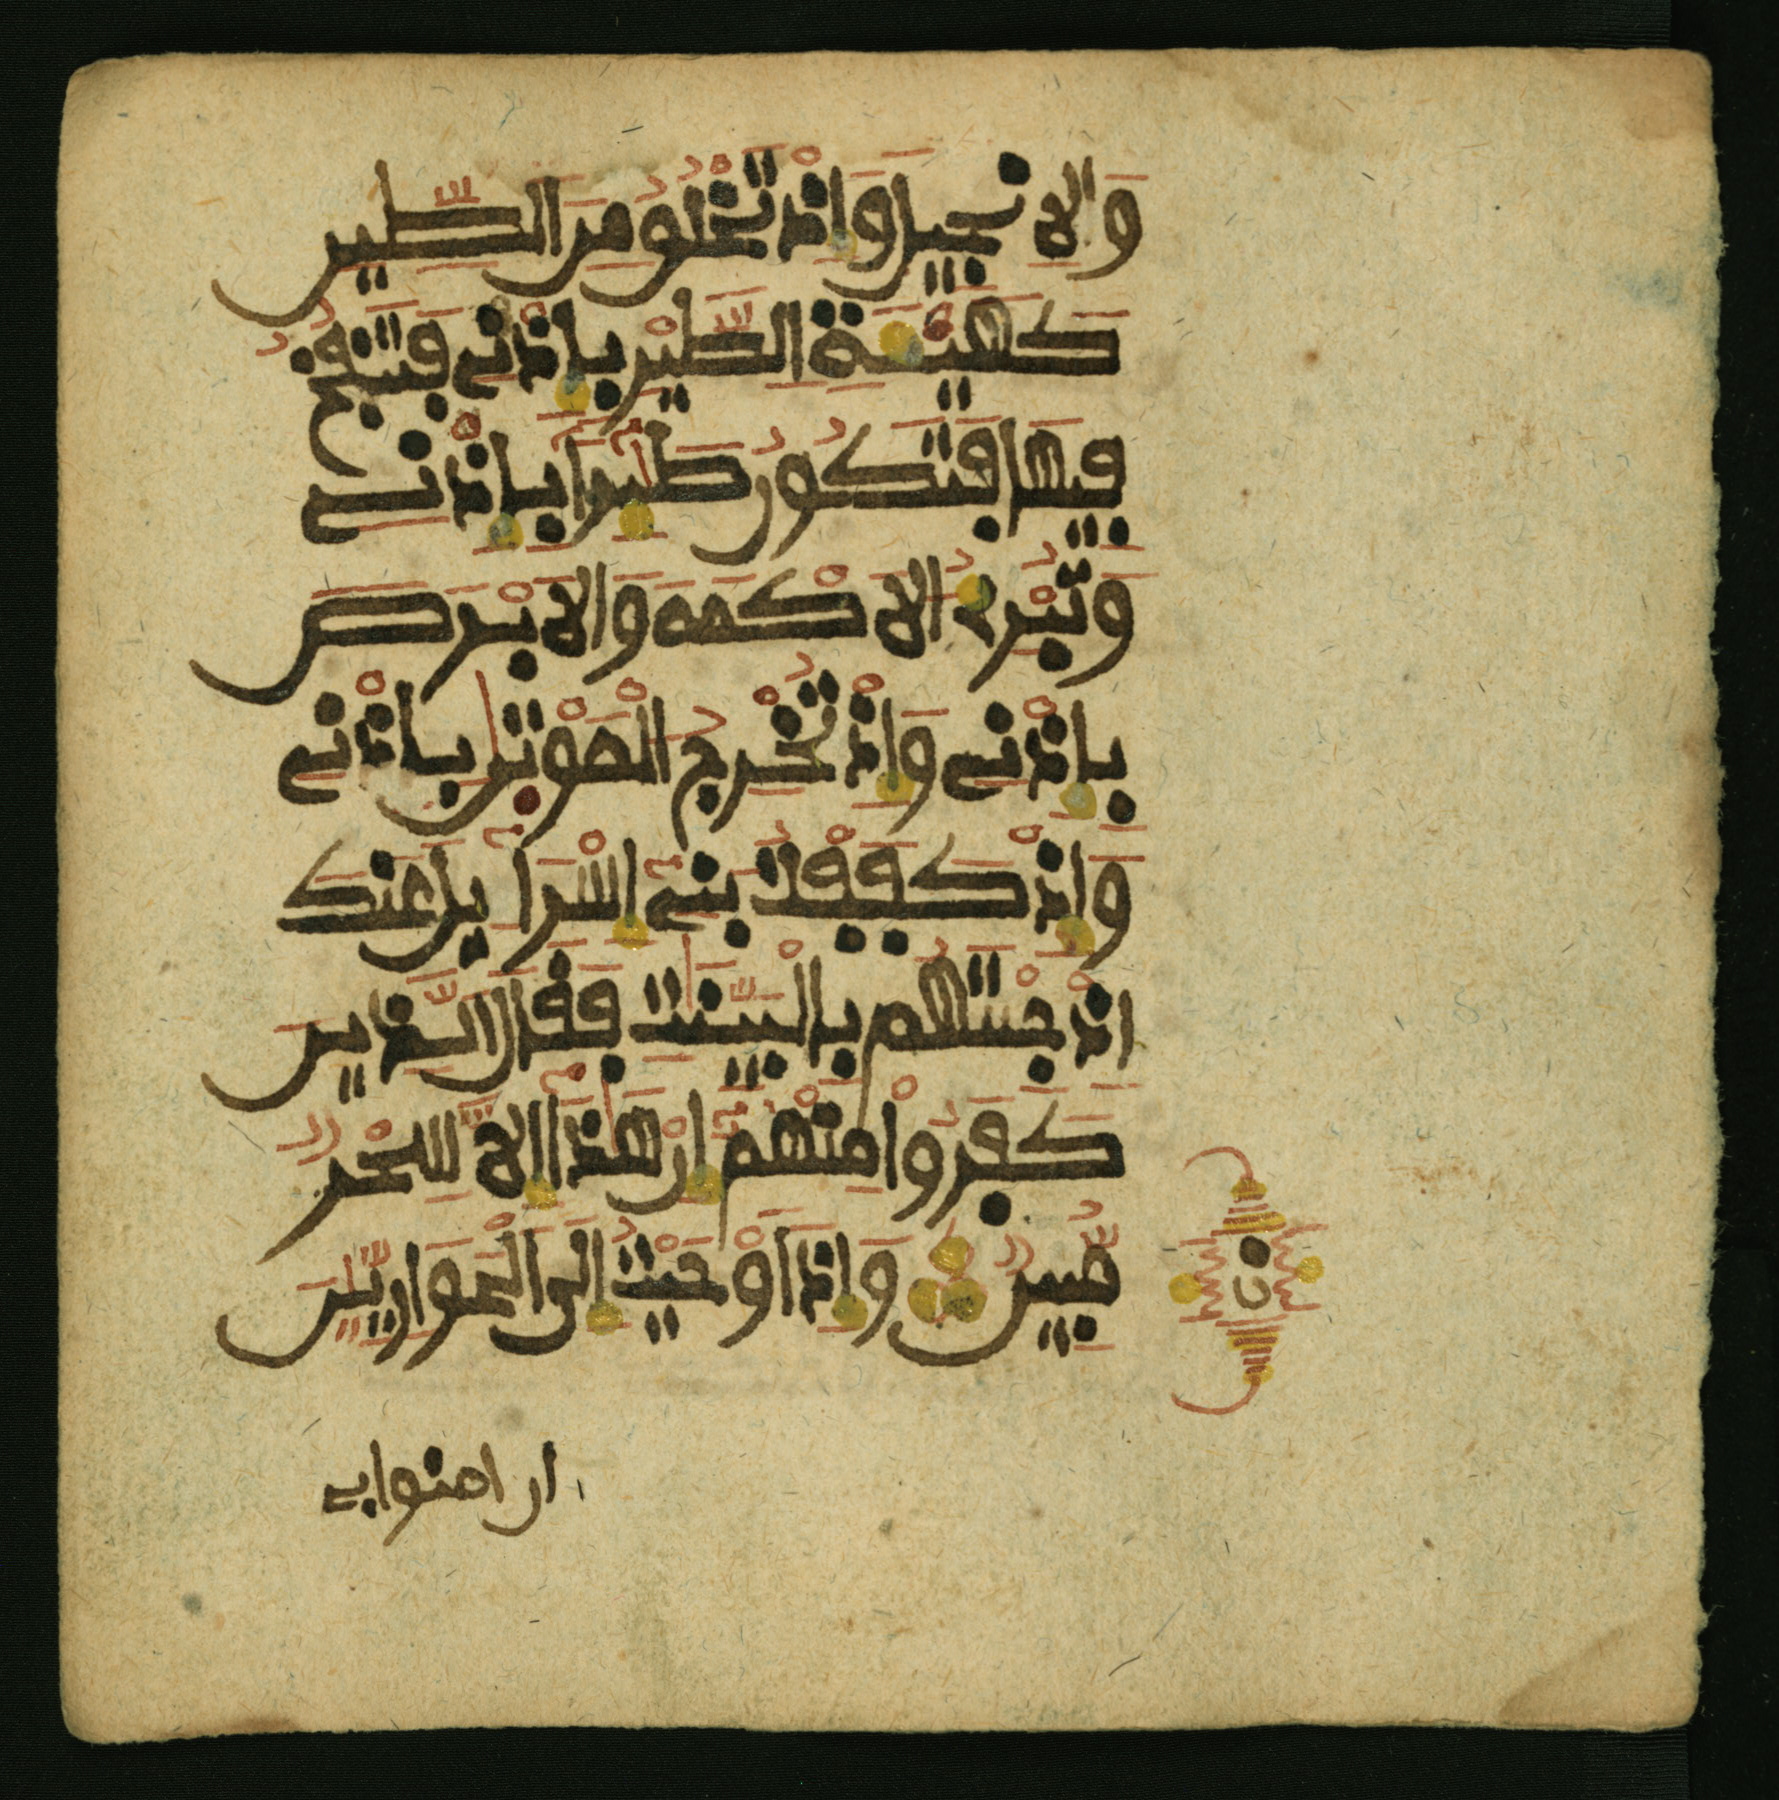 وَالِانجِيلَ وَإِذْ تَخْلُقُ مِنَ الطِّينِ
كَهَيْـَٔةِ الطَّيْرِ بِإِذْنِى فَتَنفُخُ
فِيهَا فَتَكُونُ طَٰٓئِراً بِإِذْنِى
وَتُبْرِئُ الَاكْمَهَ وَالَابْرَصَ
بِإِذْنِى وَإِذْ تُخْرِجُ الْمَوْتَىٰ بِإِذْنِى
وَإِذْ كَفَفْتُ بَنِىٓ إِسْرَآءِيلَ عَنكَ
إِذْ جِئْتَهُم بِالْبَيِّنَٰتِ فَقَالَ الَّذِينَ
كَفَرُواْ مِنْهُمُۥٓ إِنْ هَٰذَآ إِلَّا سِحْرٌ
مُّبِينٌ وَإِذَ اَوْحَيْتُ إِلَى الْحَوَارِيِّينَ
أن امنوا بى